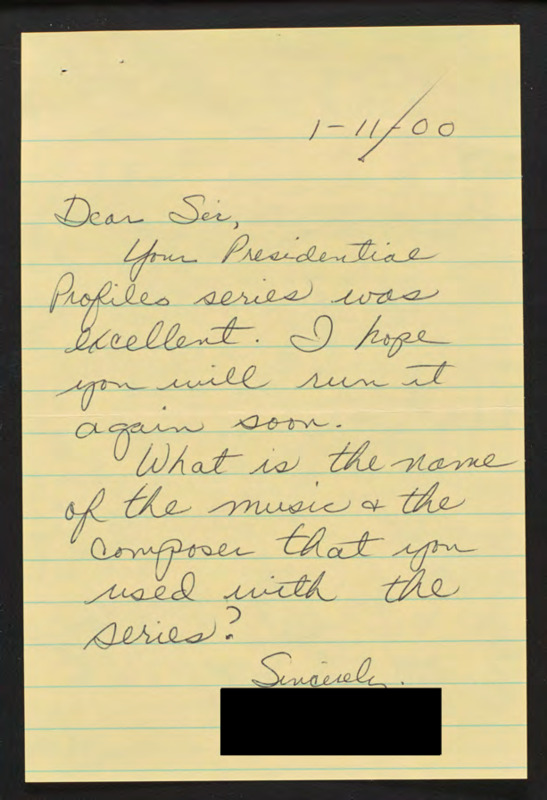 1-11-00
Dear Sir,
Your Presidential
Profiles series was
excellent. I hope
you will run it
again soon.
What is the name
of the music & the
composer that you
used with the
series?
Sincerely,